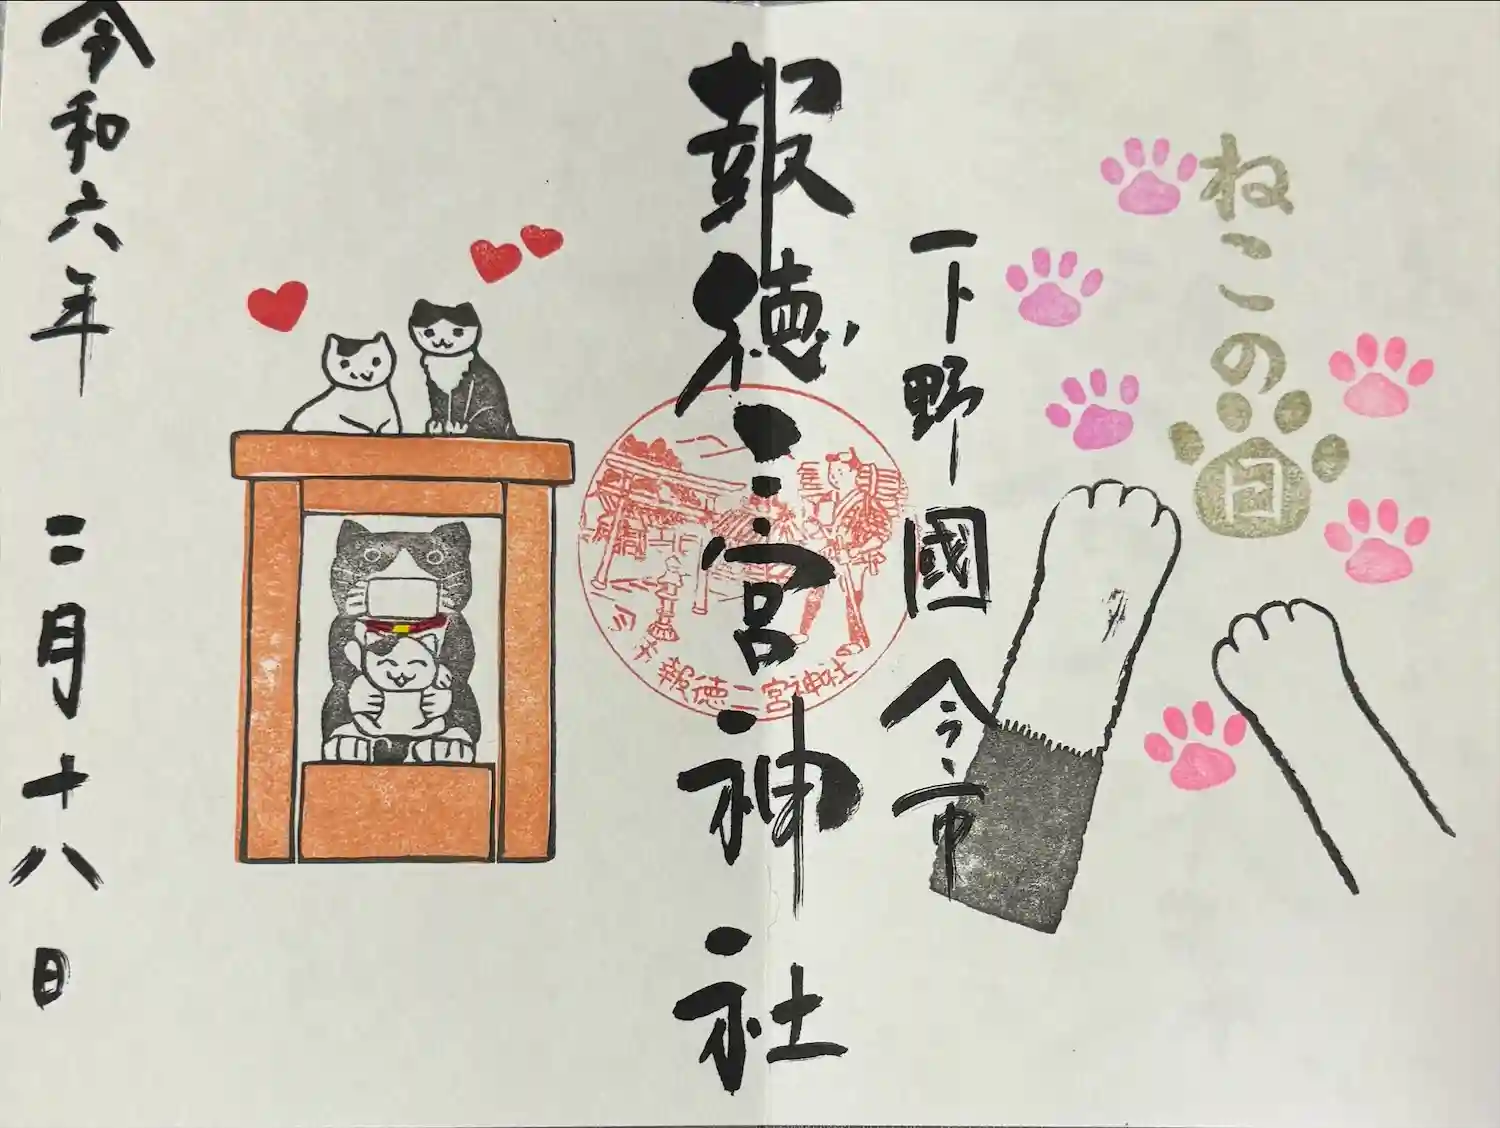 ねこの日
下野國 今市
報徳二宮神社
報徳二宮神社
令和六年 二月十八日